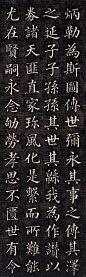 炳勒為斯圖傳世彌永其事之傳其澤
之延子子孫孫其世其緜我為作讚以
券諸天匪直家珎風化是繫而所難能
尤在賢嗣永念劬勞孝思不匱世有令